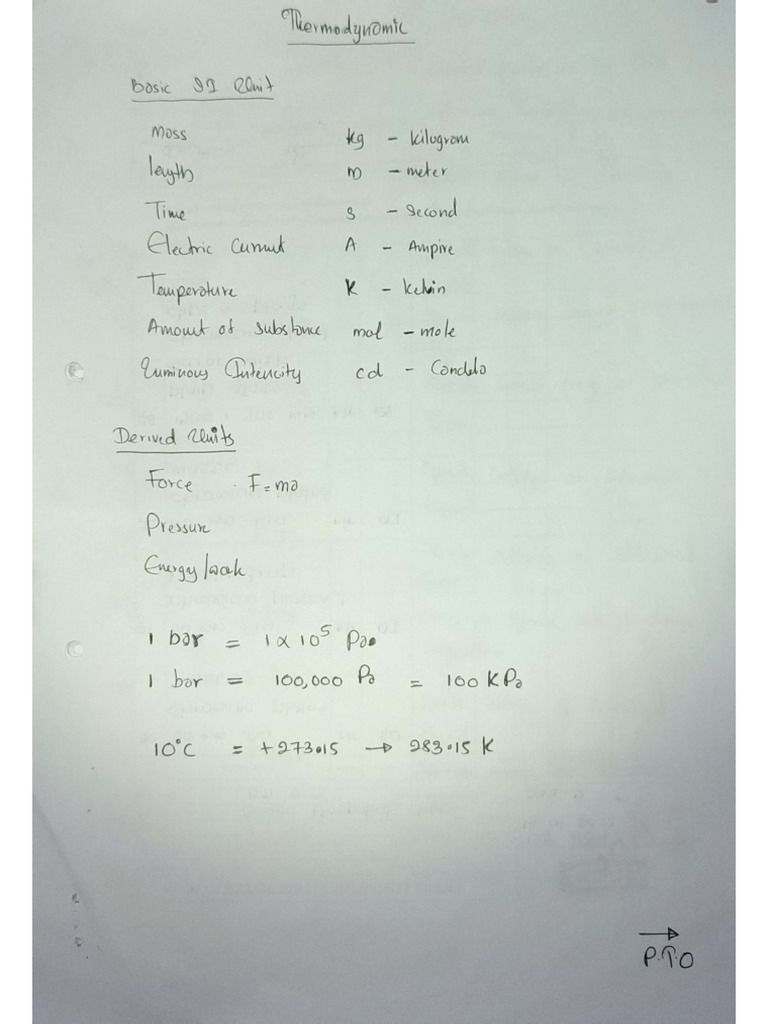 Thermodynamic
Basic SI Unit
Mass kg - kilogram
length m - meter
Time s - Second
Electric Current A - Ampire
Temperature K - kelvin
Amount of substance mol - mole
Luminous Intencity cd - Candela
Derived Units
Force . F = ma
Pressure
Energy/work
1 bar = 1 x 10⁵ Pa
1 bar = 100,000 Pa = 100 KPa
10°C = +273.15 → 283.15 K
→
P.T.O